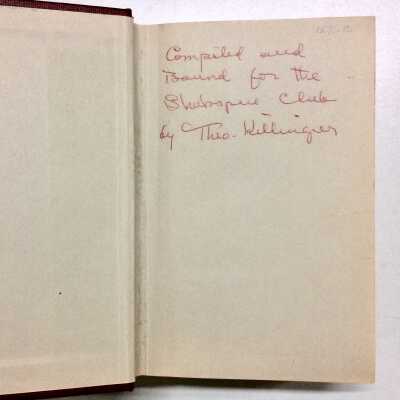 Compiled and
Bound for the
Shakespere Club
by Theo. Killinger